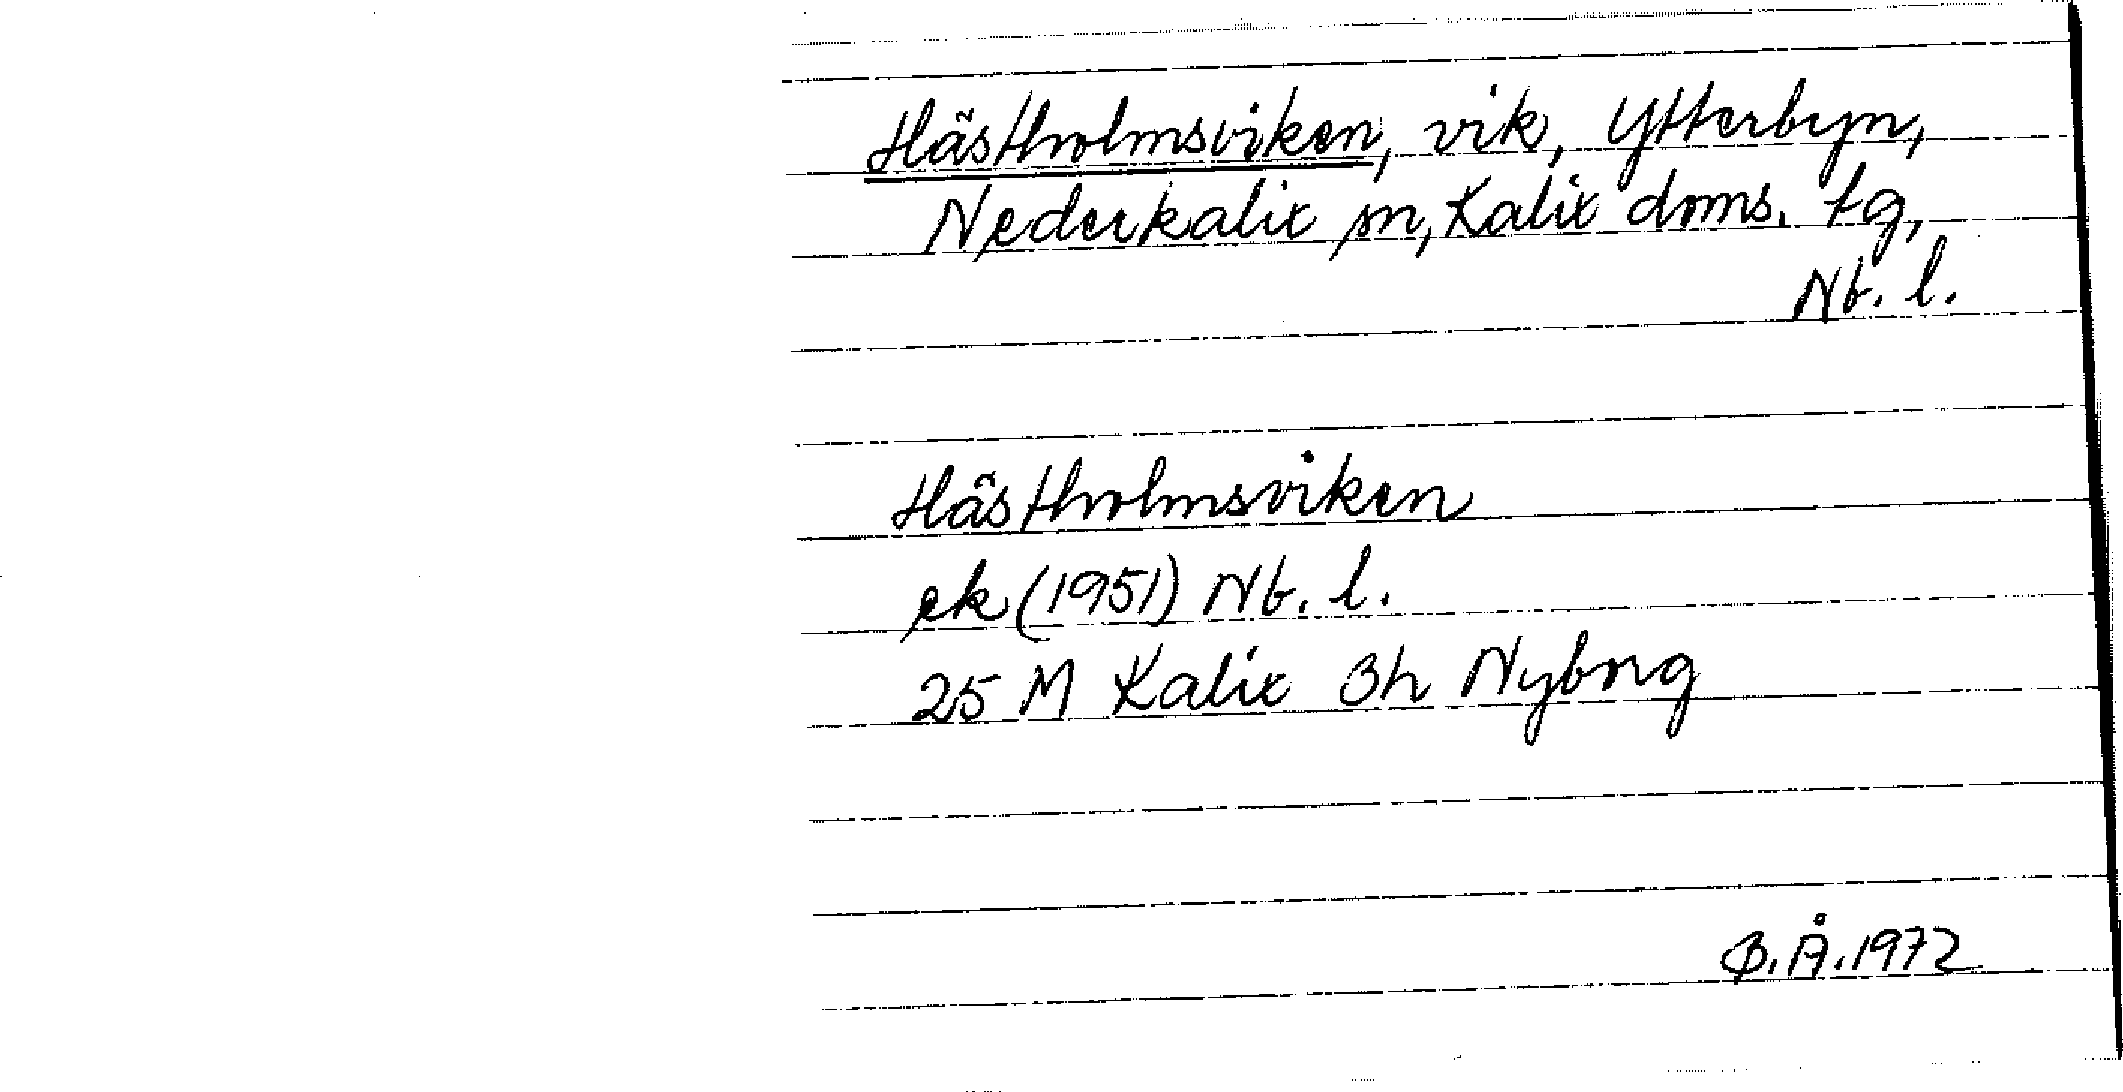 Hästholmsviken, vik, Ytterbyn,
Nederkalix sn, Kalix doms. tg,
Nb. l.
Hästholmsviken
ek (1951) Nb. l.
25 M Kalix 3h Nyborg
B.Å.1972